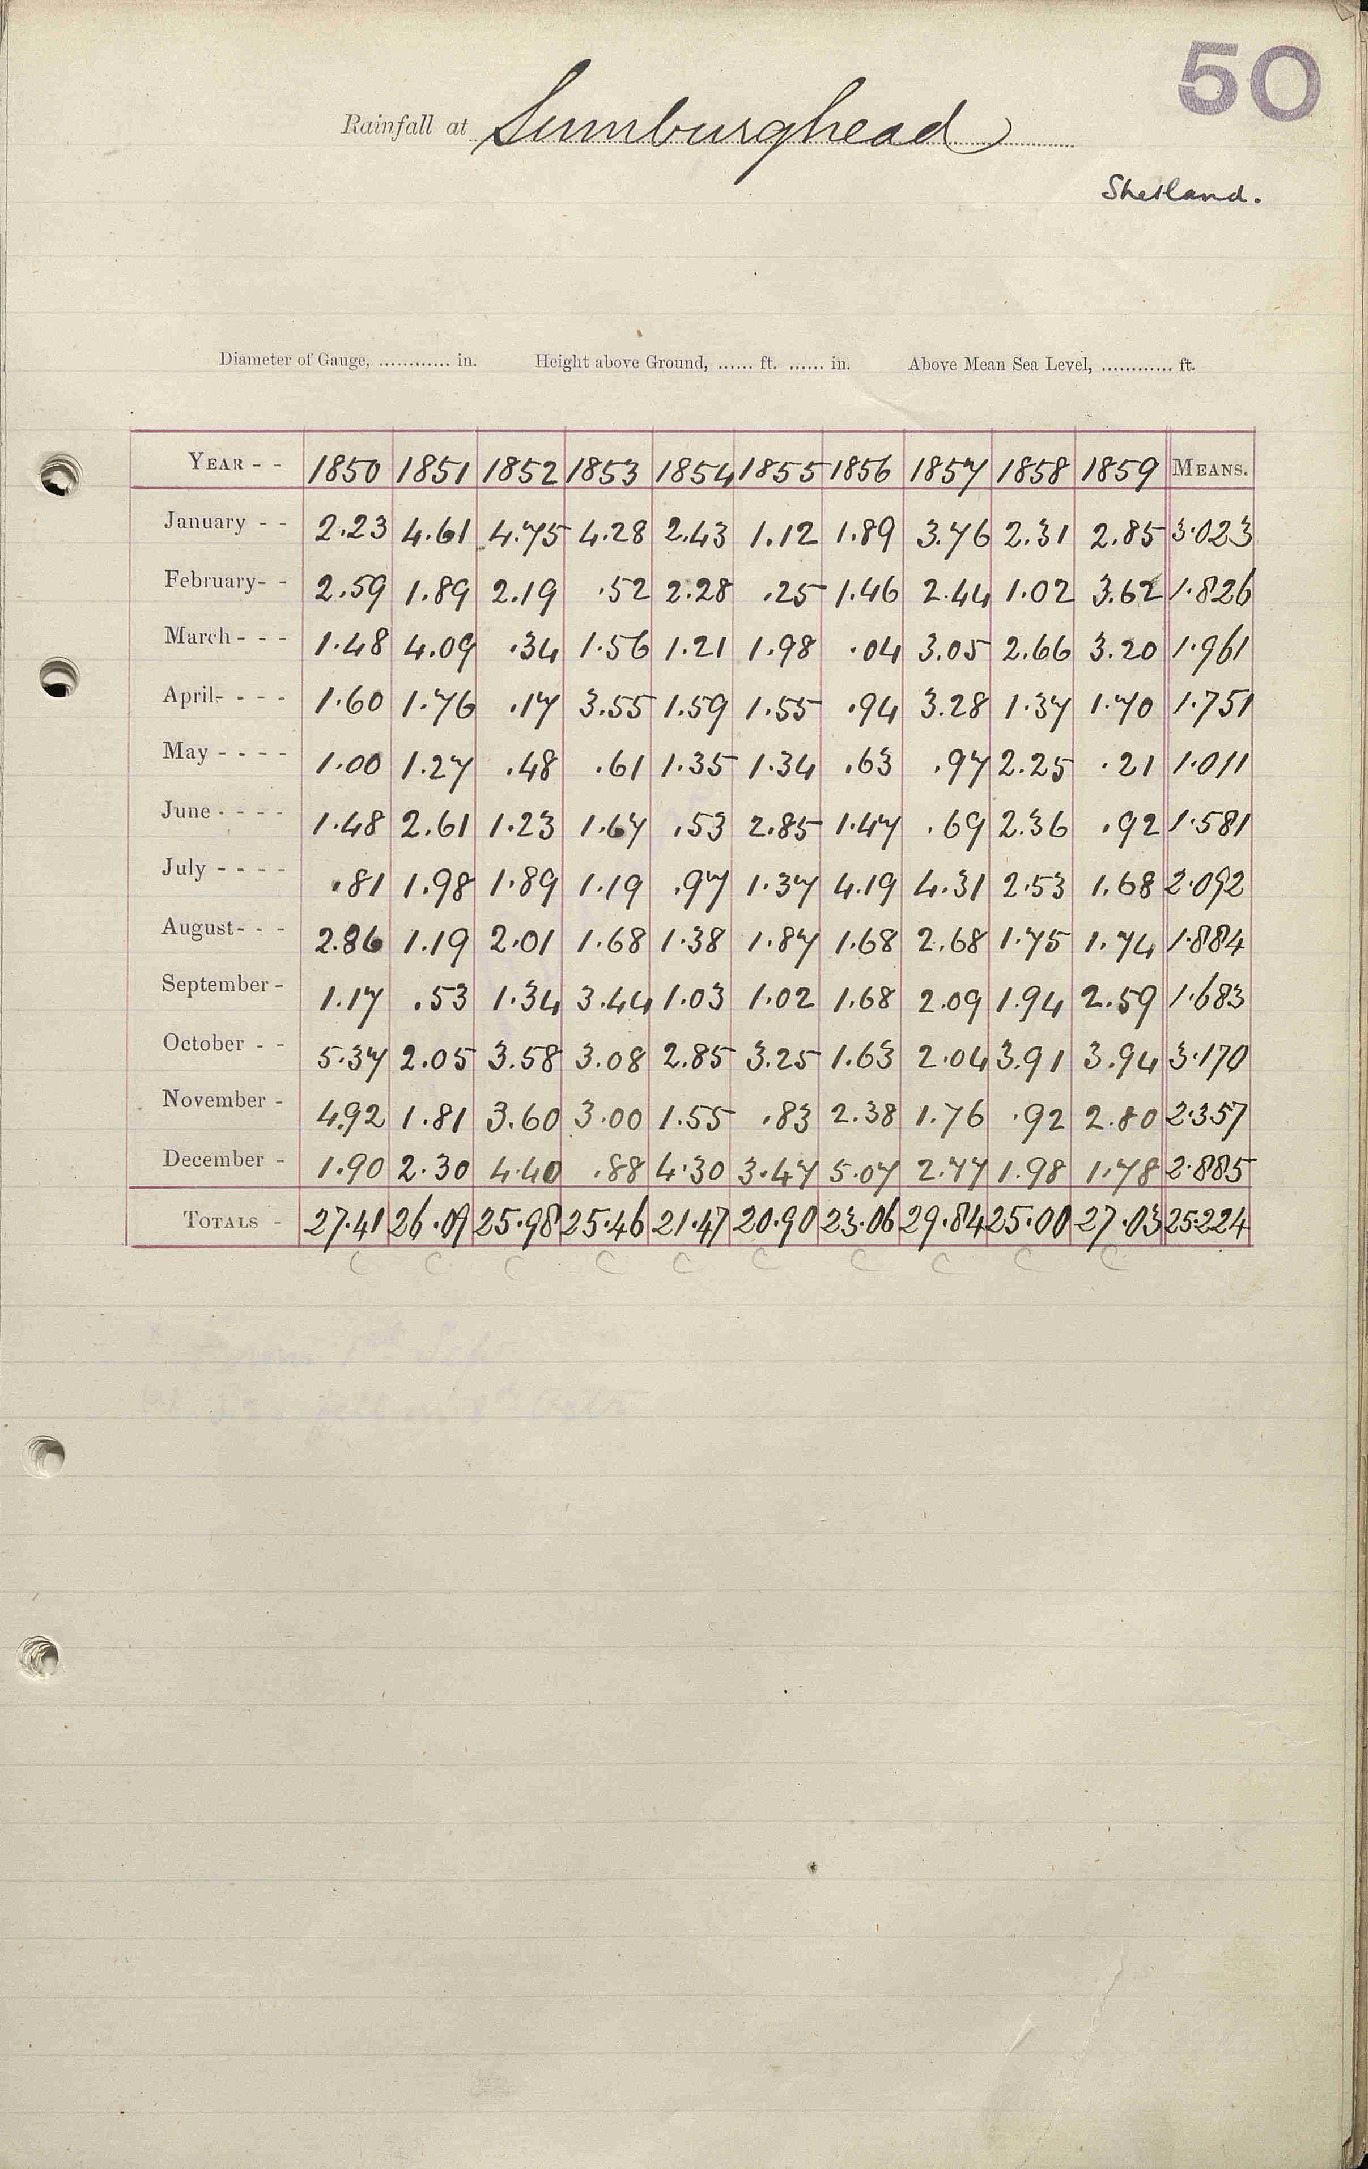 50
Rainfall at Sumburghead
Shetland.
Diameter of Gauge, ............ in. Height above Ground, ...... ft. ...... in. Above Mean Sea Level, ............ ft.
YEAR - - 1850 1851 1852 1853 1854 1855 1856 1857 1858 1859 MEANS.
January - - 2.23 4.61 4.75 4.28 2.43 1.12 1.89 3.76 2.31 2.85 3.023
February- - 2.59 1.89 2.19 .52 2.28 .25 1.46 2.44 1.02 3.62 1.826
March - - - 1.48 4.09 .34 1.56 1.21 1.98 .04 3.05 2.66 3.20 1.961
April- - - - 1.60 1.76 .17 3.55 1.59 1.55 .94 3.28 1.37 1.70 1.751
May - - - - 1.00 1.27 .48 .61 1.35 1.34 .63 .97 2.25 .21 1.011
June - - - - 1.48 2.61 1.23 1.67 .53 2.85 1.47 .69 2.36 .92 1.581
July - - - - .81 1.98 1.89 1.19 .97 1.37 4.19 4.31 2.53 1.68 2.092
August- - - 2.86 1.19 2.01 1.68 1.38 1.87 1.68 2.68 1.75 1.74 1.884
September - 1.17 .53 1.34 3.44 1.03 1.02 1.68 2.09 1.94 2.59 1.683
October - - 5.37 2.05 3.58 3.08 2.85 3.25 1.63 2.04 3.91 3.94 3.170
November - 4.92 1.81 3.60 3.00 1.55 .83 2.38 1.76 .92 2.80 2.357
December - 1.90 2.30 4.40 .88 4.30 3.47 5.07 2.77 1.98 1.78 2.885
TOTALS - 27.41 26.09 25.98 25.46 21.47 20.90 23.06 29.84 25.00 27.03 25.224
C C C C C C C C C C